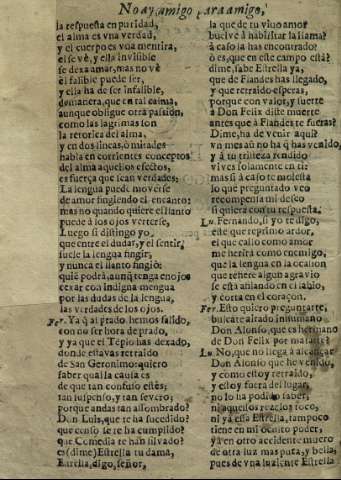 No ay amigo para amigo,
la respuesta en puridad,
el alma es vna verdad,
y el cuerpo es vna mentira,
el se vè, y ella inuisible
se dexa amar, mas no vè
èl falible puede ser,
y ella ha de ser infalible,
de manera, que en tal calma,
aunque obligue otra passion,
como las lagrimas son
la retorica del alma,
y en dos lineas, ò mitades
habla en corrientes conceptos
del alma aquellos efectos,
es fuerça que sean verdades;
La lengua puede mouerse
de amor fingiendo el encanto:
mas no quando quiere el llanto
puede à los ojos verterse,
Luego si distingo yo,
que entre el dudar, y el sentir,
suele la lengua fingir,
y nunca el llanto fingiò:
quiè podrà, aunq̃ tenga enojos
cexar con indigna mengua
por las dudas de la lengua,
las verdades de los ojos.
Fer. Ya q̃ al prado hemos salido,
con no ser hora de prado,
y ya que el Tẽplo has dexado,
donde estavas retraìdo
de San Geronimo: quiero
saber qual la causa es
de que tan confuso estès;
tan suspenso, y tan severo;
porque andas tan assombrado?
Don Luis, que te ha sucedido?
que censo se te ha cumplido?
que Comedia te han silvado?
es (dime) Estrella tu dama,
Estrella, digo, señor,
la que de tu viuo amor
buelve à habilitar la llama?
à caso la has encontrado?
ò es, que en este campo està?
dime, sabe Estrella ya,
que de Flandes has llegado,
y que retraìdo esperas,
porque con valor, y suerte
à Don Felix diste muerte
antes que à Flandes te fueras?
Dime, ha de venir aqui?
vn mes aũ no ha q̃ has venido,
y à tu tristeza rendido
vives solamente en ti:
mas si à caso te molesta
lo que preguntado veo
recompensa mi desseo
si quiera con tu respuesta.
Lu. Fernando, si yo te digo,
este que reprimo ardor,
el que callo como amor
me herirà como enemigo,
que la lengua en la ocasion
que refiere algun agravio
se està afilando en el labio,
y corta en el coraçon.
Fer. Esto quiero preguntarte,
buscate ayrado inhumano
Don Alonso, que es hermano
de Don Felix por matarte?
Lu. No, que no llega à alcançar
Don Alonso que he venido,
y como estoy retraìdo,
y estoy fuera del lugar,
no lo ha podido saber,
ni aquellos rezelos toco,
ni ya essa Estrella, tampoco
tiene en mi oculto poder,
y à en otro accidente muero
de otra luz mas pura, y bella,
pues de vna luziente Estrella